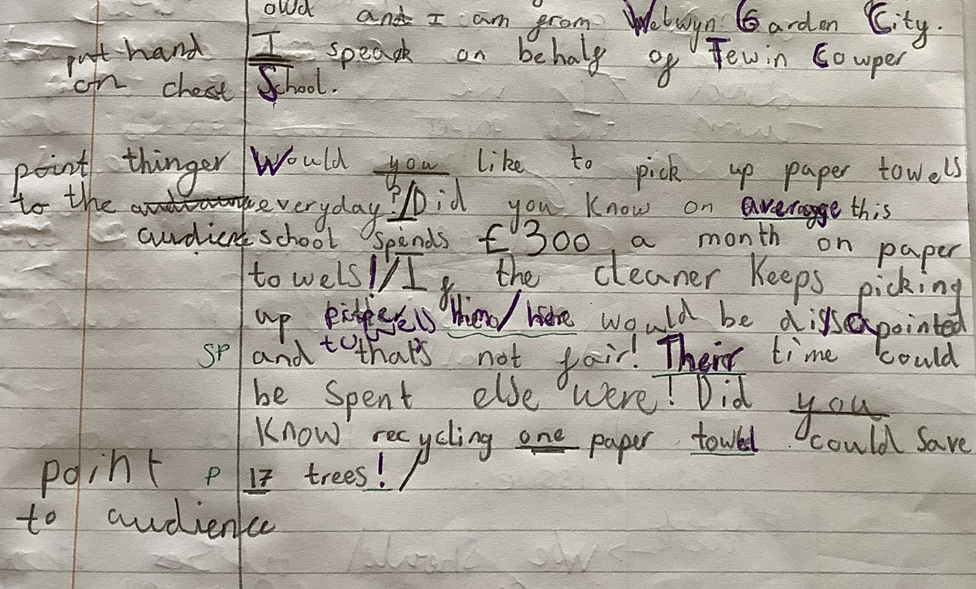 owd and I am from Welwyn Garden City.
put hand I speack on behalf of Tewin Cowper
on chest School.
point thinger Would you like to pick up paper towels
to the everyday?/Did you know on average this
audience school spends £300 a month on paper
towels!/If the cleaner keeps picking
up paper towells him/here would be dissapointed
SP and that's not fair! Their time could
be spent else were! Did you
know recycling one paper towel could save
point P 17 trees!/
to audience